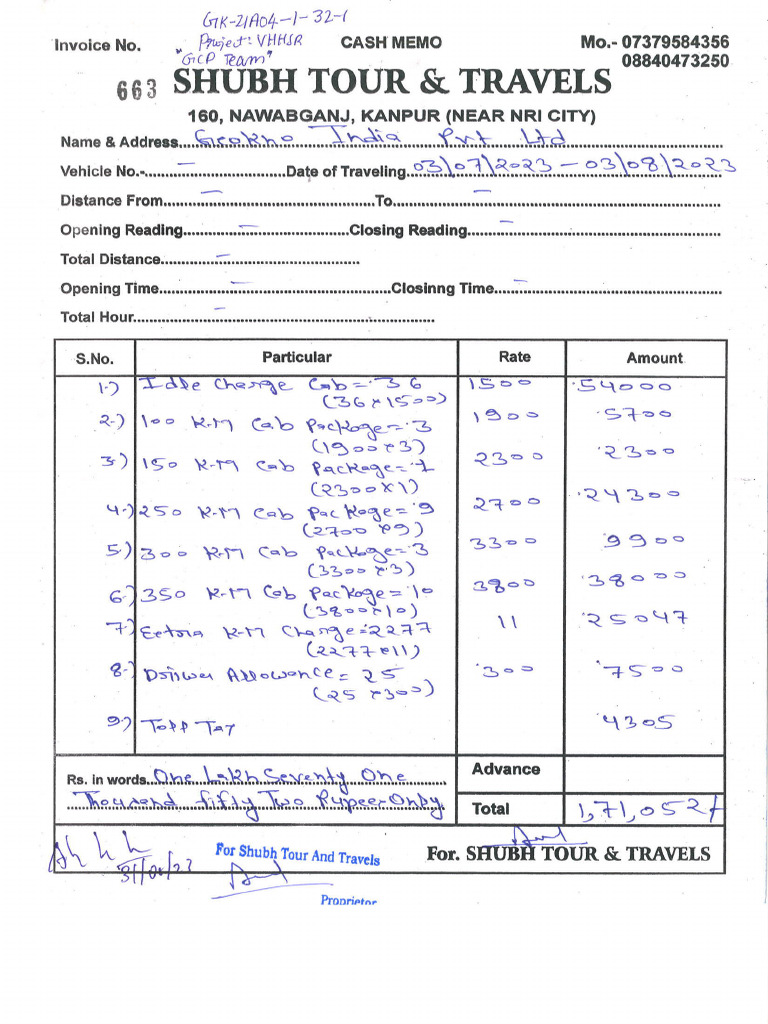 GTK-21A04-1-32-1
Invoice No. Project: VHHSR CASH MEMO Mo.- 07379584356
"GCP Team" 08840473250
663 SHUBH TOUR & TRAVELS
160, NAWABGANJ, KANPUR (NEAR NRI CITY)
Name & Address....Geokno India Pvt Ltd
Vehicle No.-....–....Date of Traveling 03/07/2023 – 03/08/2023
Distance From....–....To....–....
Opening Reading....–....Closing Reading....–....
Total Distance....–....
Opening Time....–....Closinng Time....–....
Total Hour....–....
S.No. Particular Rate Amount
1.) Idle Charge Cab = 36 1500 54000
(36×1500)
2.) 100 K.M Cab Package = 3 1900 5700
(1900×3)
3.) 150 K.M Cab Package = 1 2300 2300
(2300×1)
4.) 250 K.M Cab Package = 9 2700 24300
(2700×9)
5.) 300 K.M Cab Package = 3 3300 9900
(3300×3)
6.) 350 K.M Cab Package = 10 3800 38000
(3800×10)
7.) Eetora K.M Charge = 2277 11 25047
(2277×11)
8.) Driiwer Allowance = 25 300 7500
(25×300)
9.) Toll Tax 4305
Rs. in words..One Lakh Seventy One Advance
Thousand fifty Two Rupeer Only Total 1,71,052/
For Shubh Tour And Travels For. SHUBH TOUR & TRAVELS
Proprietor